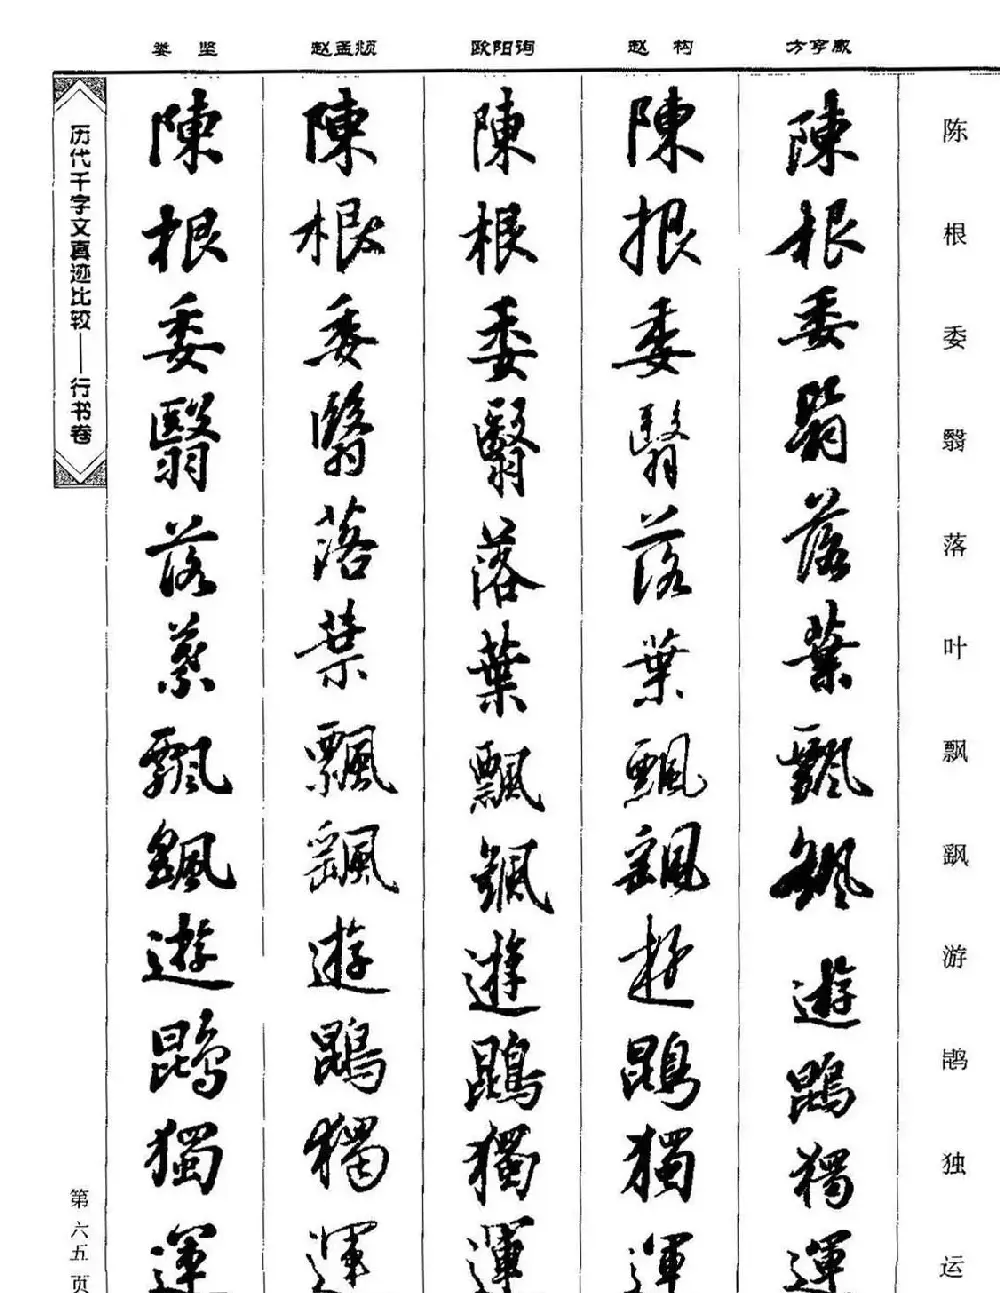 娄坚 赵孟頫 欧阳询 赵构 方亨咸
陈根委翳落叶飘飖游鹍独运
陳根委翳落葉飄颻遊鵾獨運
陳根委翳落葉飄颻遊鵾獨運
陳根委翳落葉飄颻遊鵾獨運
陳根委翳落葉飄颻遊鵾獨運
陳根委翳落葉飄颻遊鵾獨運
历代千字文真迹比较——行书卷
第六五页